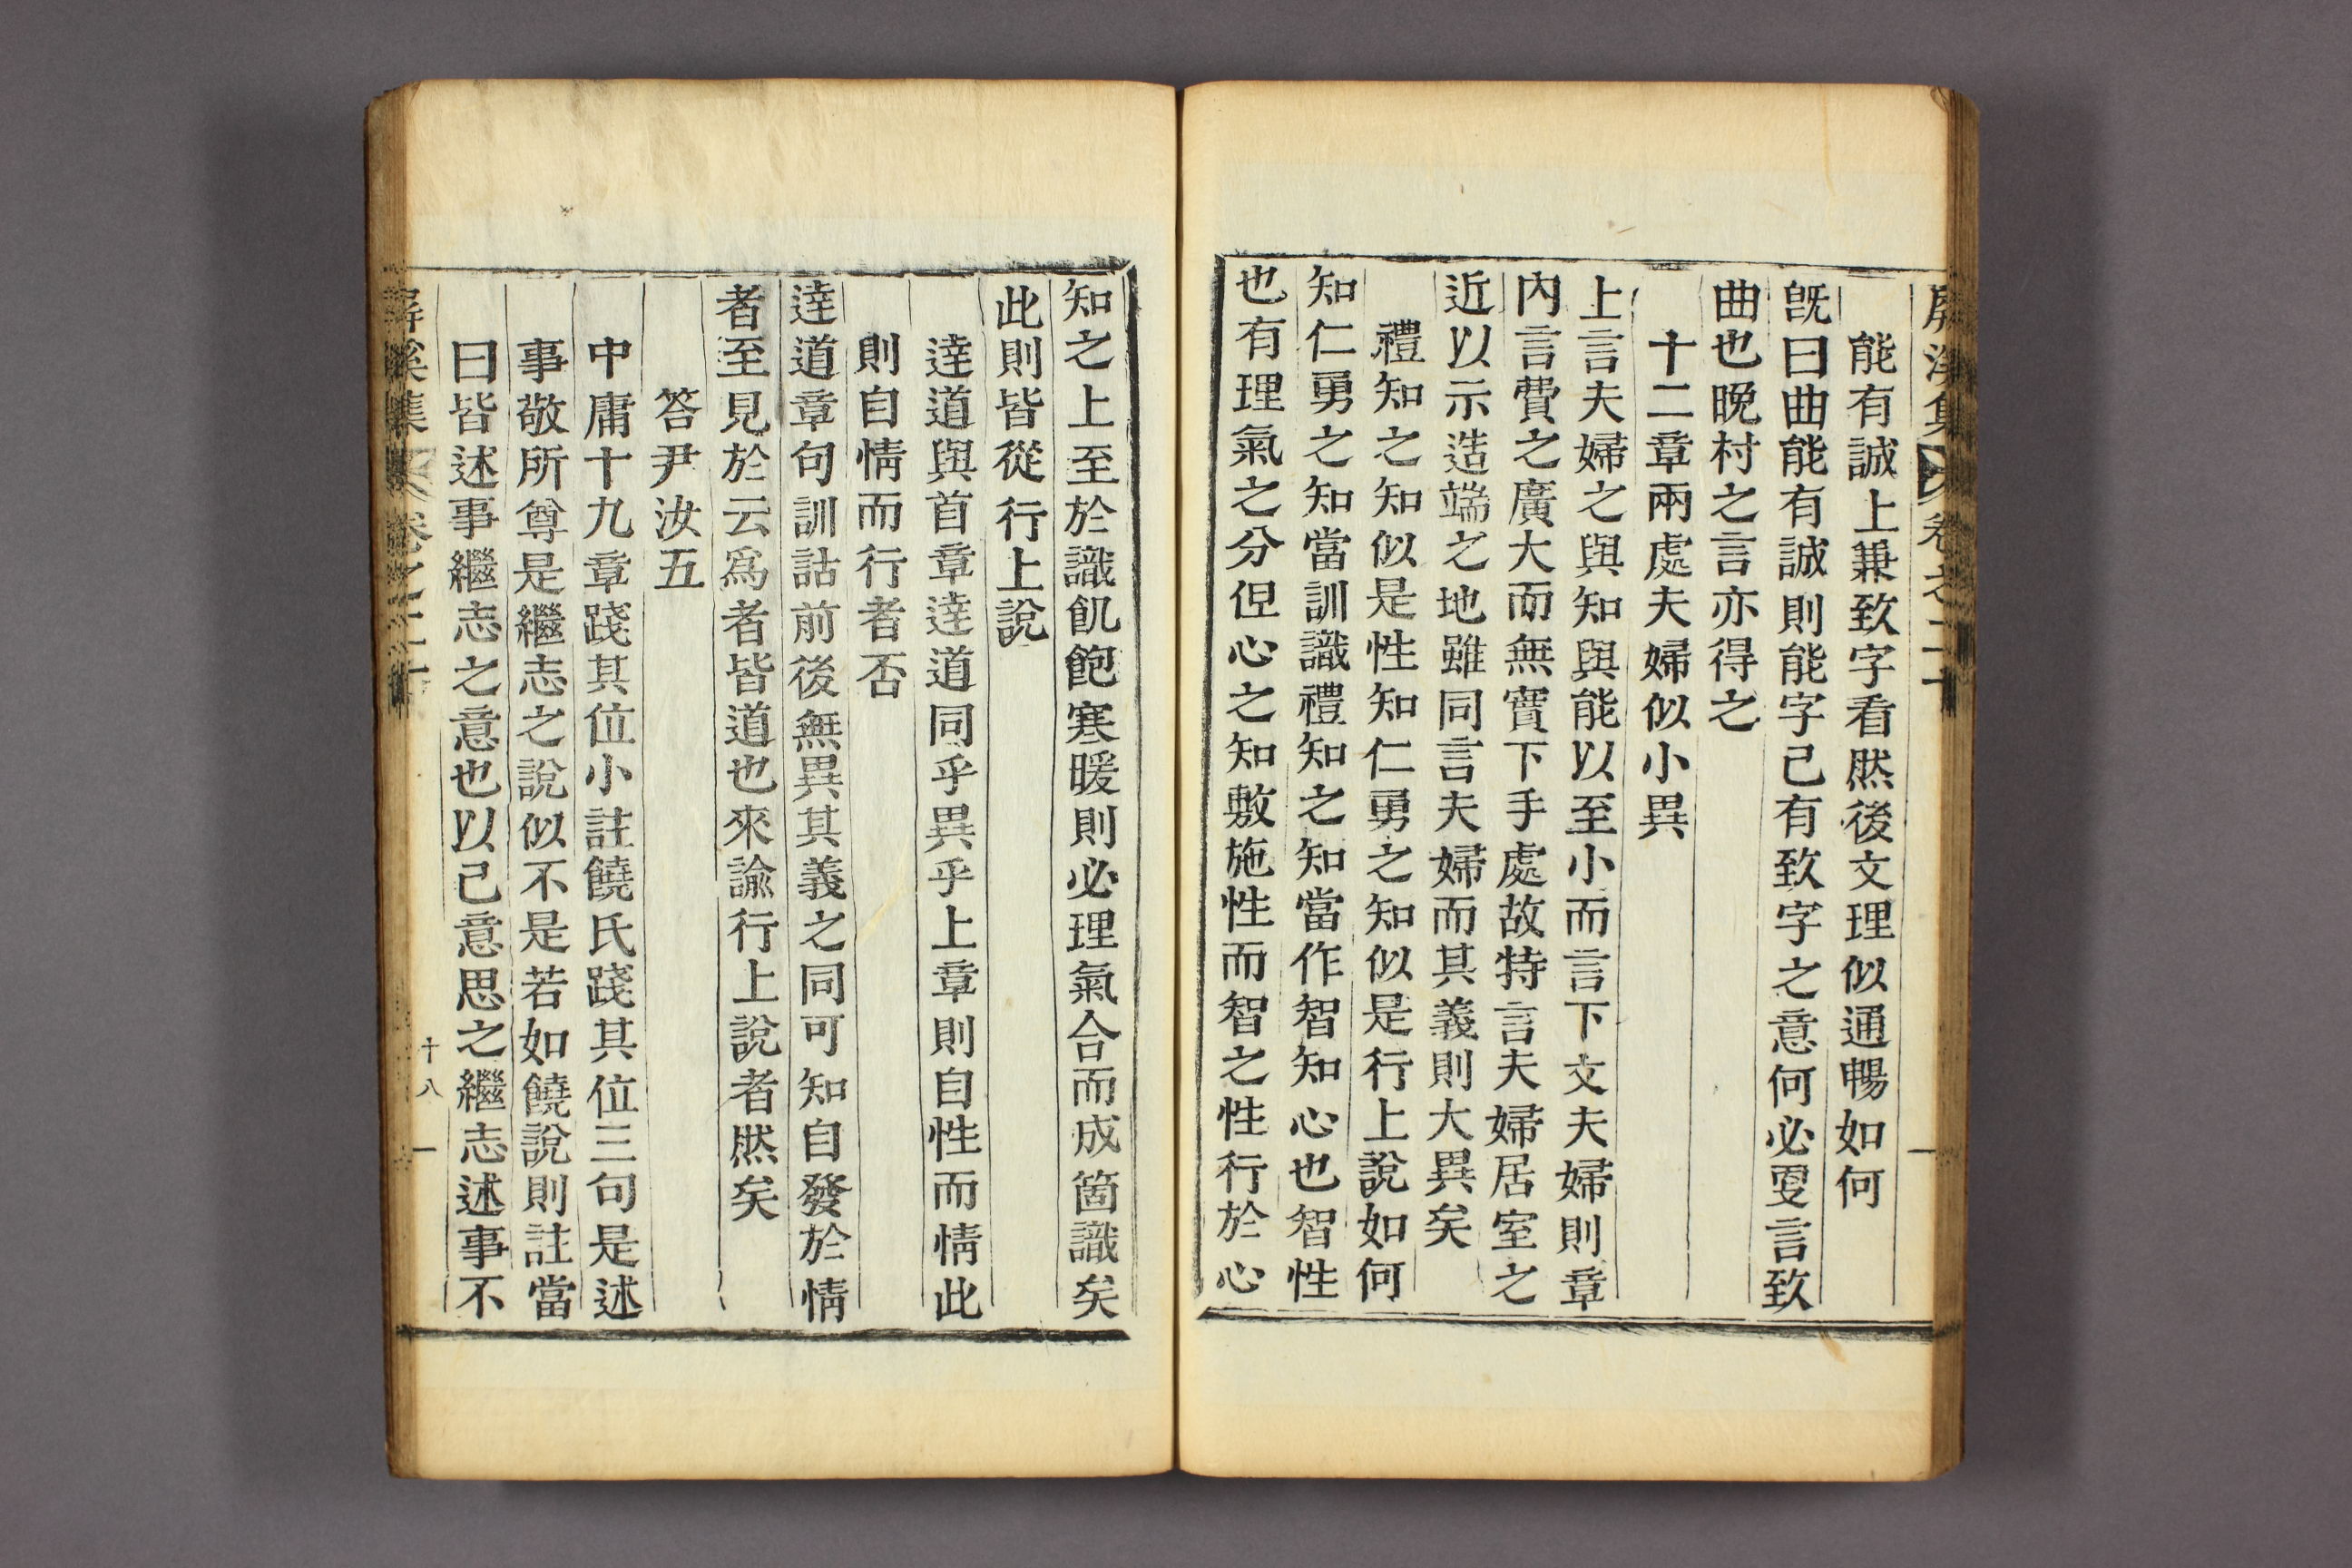 屛溪集 卷之二十
能有誠上兼致字看然後文理似通暢如何
旣曰曲能有誠則能字已有致字之意何必更言致
曲也晩村之言亦得之
十二章兩處夫婦似小異
上言夫婦之與知與能以至小而言下文夫婦則章
內言費之廣大而無實下手處故特言夫婦居室之
近以示造端之地雖同言夫婦而其義則大異矣
禮知之知似是性知仁勇之知似是行上說如何
知仁勇之知當訓識禮知之知當作智知心也智性
也有理氣之分但心之知敷施性而智之性行於心
知之上至於識飢飽寒暖則必理氣合而成箇識矣
此則皆從行上說
達道與首章達道同乎異乎上章則自性而情此
則自情而行者否
達道章句訓詁前後無異其義之同可知自發於情
者至見於云爲者皆道也來諭行上說者然矣
答尹汝五
中庸十九章踐其位小註饒氏踐其位三句是述
事敬所尊是繼志之說似不是若如饒說則註當
曰皆述事繼志之意也以己意思之繼志述事不
屛溪集 卷之二十 十八